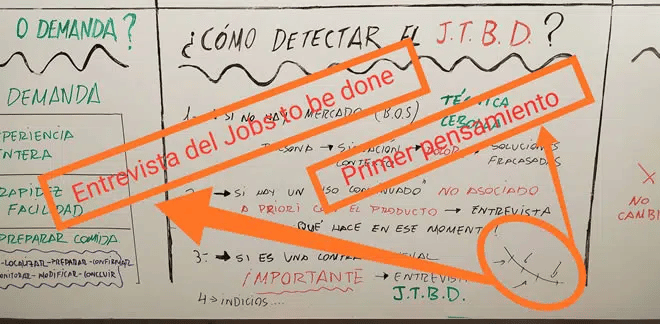 O DEMANDA?
DEMANDA
PERIENCIA
NTERA
RAPIDEZ
FACILIDAD
PREPARAR COMIDA
-LOCALIZAR-PREPARAR-CONFIRMAR
MONITORIZAR-MODIFICAR-CONCLUIR
¿CÓMO DETECTAR EL J.T.B.D.?
1- SI NO HAY MERCADO (B.O.S)
TÉCNICA
CEBOLLA
SITUACIÓN
CONTEXTO
SOLUCIONES
FRACASADAS
→ SI HAY UN USO CONTINUADO" NO ASOCIADO
A PRIORI CON EL PRODUCTO → ENTREVISTA
QUÉ HACE EN ESE MOMENTO
3- → SI ES UNA
IMPORTANTE → ENTREVISTA
J.T.B.D.
4→ INDICIOS....
Entrevista del Jobs to be done
Primer pensamiento
X
NO
CAMBI